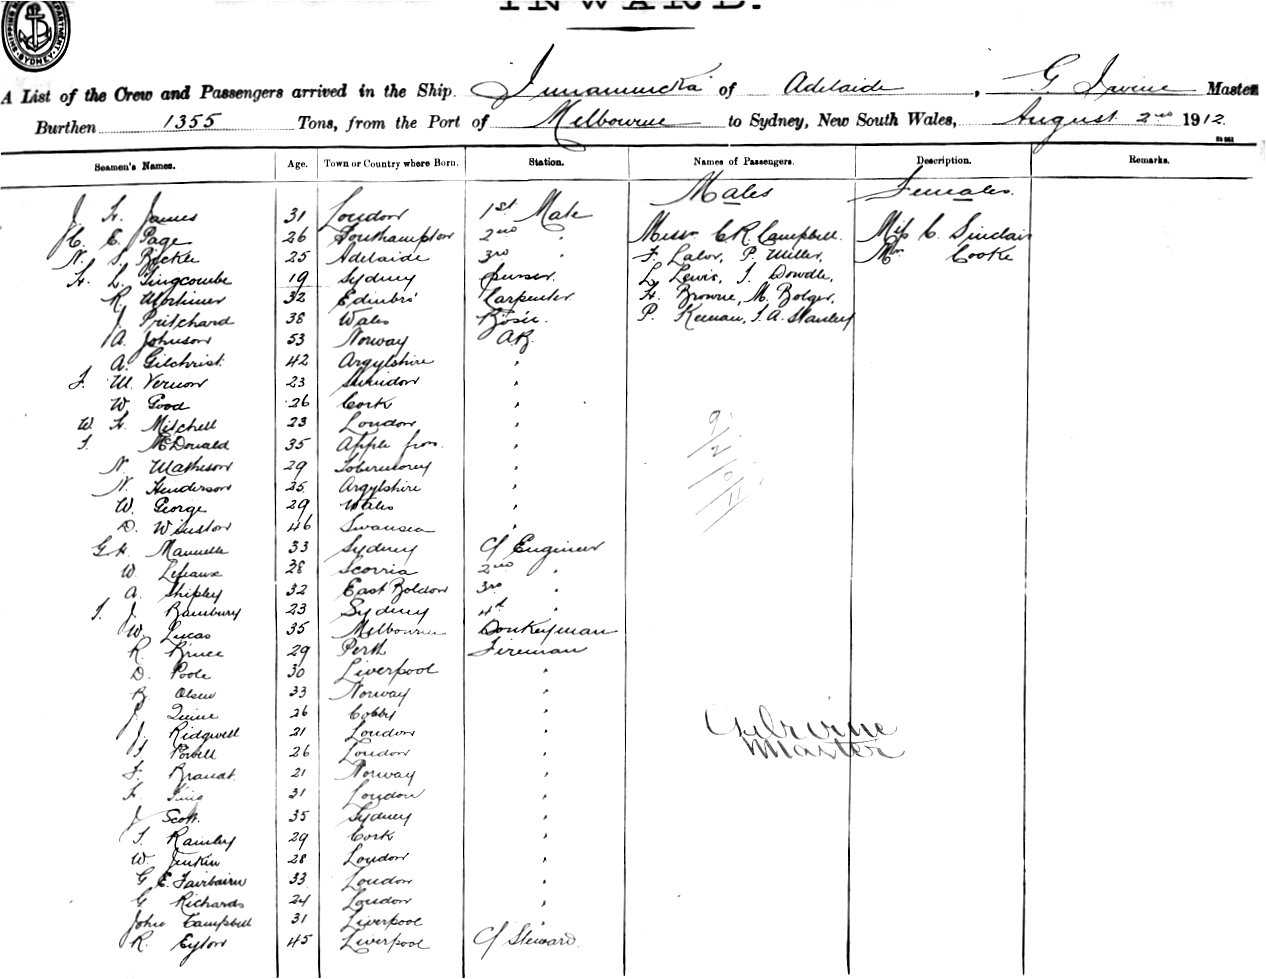 INWARD.
SHIPPING DEPARTMENT. SYDNEY.
A List of the Crew and Passengers arrived in the Ship Innamincka of Adelaide, G Irvine Master
Burthen 1355 Tons, from the Port of Melbourne to Sydney, New South Wales, August 2nd 1912.
Seamen's Names. Age. Town or Country where Born. Station. Names of Passengers. Description. Remarks.
Males Females.
J. H. James 31 London 1st Mate
C. E. Page 26 Southampton 2nd " Messrs C R Campbell. Miss C. Sinclair
N. S. Becker 25 Adelaide 3rd " F. Lalor, P. Miller, Mrs Cooke
H. L. Lingcombe 19 Sydney Purser L. Lewis, J. Dowdle,
R. Mortimer 32 Edinbro' Carpenter H. Browne, M. Bolger,
J. Pritchard 38 Wales Bosn. P. Keenan, J. A. Stanley
A. Johnson 53 Norway A.B.
A. Gilchrist 42 Argylshire "
F. W. Vernon 23 "
W. Good 26 Cork "
W. H. Mitchell 23 London "
J. McDonald 35 Apple "
N. Matheson 29 Tobermorey "
N. Henderson 25 Argylshire "
W. George 29 Wales "
D. Winston 46 Swansea "
G. H. Maunelle 33 Sydney C/ Engineer
W. Lefeaux 28 Scorria 2nd "
A. Shipley 32 East Boldon 3rd "
T. J. Bambury 23 Sydney 4th "
W. Lucas 35 Melbourne Donkeyman
R. Bruce 29 Perth Fireman
D. Poole 30 Liverpool "
B. Olsen 33 Norway "
J. Quine 26 "
J. Ridgwell 21 London "
J. Powell 26 London "
F. Brandt 21 Norway "
F. King 31 London "
J. Scott 35 Sydney "
T. Ramley 29 Cork "
W. Jenkin 28 London "
G. E. Fairbairn 33 London "
G. Richards 24 London "
John Campbell 31 Liverpool "
R. Eyton 45 Liverpool C/ Steward
9/2/0/11
G Irvine
Master